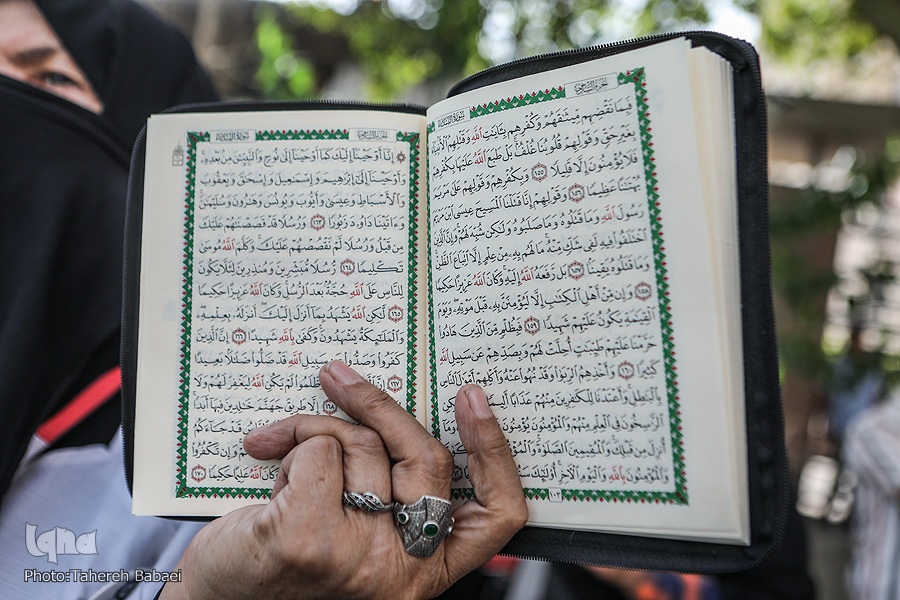 سورة النساء
الجزء السادس
فَبِمَا نَقْضِهِم مِّيثَٰقَهُمْ وَكُفْرِهِم بِـَٔايَٰتِ ٱللَّهِ وَقَتْلِهِمُ ٱلْأَنۢبِيَآءَ
بِغَيْرِ حَقٍّ وَقَوْلِهِمْ قُلُوبُنَا غُلْفٌۢ بَلْ طَبَعَ ٱللَّهُ عَلَيْهَا بِكُفْرِهِمْ
فَلَا يُؤْمِنُونَ إِلَّا قَلِيلًا ١٥٥ وَبِكُفْرِهِمْ وَقَوْلِهِمْ عَلَىٰ مَرْيَمَ
بُهْتَٰنًا عَظِيمًا ١٥٦ وَقَوْلِهِمْ إِنَّا قَتَلْنَا ٱلْمَسِيحَ عِيسَى ٱبْنَ مَرْيَمَ
رَسُولَ ٱللَّهِ وَمَا قَتَلُوهُ وَمَا صَلَبُوهُ وَلَٰكِن شُبِّهَ لَهُمْ وَإِنَّ ٱلَّذِينَ
ٱخْتَلَفُوا۟ فِيهِ لَفِى شَكٍّ مِّنْهُ مَا لَهُم بِهِۦ مِنْ عِلْمٍ إِلَّا ٱتِّبَاعَ ٱلظَّنِّ
وَمَا قَتَلُوهُ يَقِينًۢا ١٥٧ بَل رَّفَعَهُ ٱللَّهُ إِلَيْهِ وَكَانَ ٱللَّهُ عَزِيزًا حَكِيمًا
١٥٨ وَإِن مِّنْ أَهْلِ ٱلْكِتَٰبِ إِلَّا لَيُؤْمِنَنَّ بِهِۦ قَبْلَ مَوْتِهِۦ وَيَوْمَ
ٱلْقِيَٰمَةِ يَكُونُ عَلَيْهِمْ شَهِيدًا ١٥٩ فَبِظُلْمٍ مِّنَ ٱلَّذِينَ هَادُوا۟
حَرَّمْنَا عَلَيْهِمْ طَيِّبَٰتٍ أُحِلَّتْ لَهُمْ وَبِصَدِّهِمْ عَن سَبِيلِ ٱللَّهِ
كَثِيرًا ١٦٠ وَأَخْذِهِمُ ٱلرِّبَوٰا۟ وَقَدْ نُهُوا۟ عَنْهُ وَأَكْلِهِمْ أَمْوَٰلَ ٱلنَّاسِ
بِٱلْبَٰطِلِ وَأَعْتَدْنَا لِلْكَٰفِرِينَ مِنْهُمْ عَذَابًا أَلِيمًا
ٱلرَّٰسِخُونَ فِى ٱلْعِلْمِ مِنْهُمْ وَٱلْمُؤْمِنُونَ يُؤْمِنُونَ
أُنزِلَ مِن قَبْلِكَ وَٱلْمُقِيمِينَ ٱلصَّلَوٰةَ
وَٱلْمُؤْمِنُونَ بِٱللَّهِ وَٱلْيَوْمِ ٱلْءَاخِرِ أُو۟لَٰٓئِكَ
١٠٣
سورة النساء
الجزء السادس
إِنَّآ أَوْحَيْنَآ إِلَيْكَ كَمَآ أَوْحَيْنَآ إِلَىٰ نُوحٍ وَٱلنَّبِيِّۦنَ مِنۢ بَعْدِهِۦ
وَأَوْحَيْنَآ إِلَىٰٓ إِبْرَٰهِيمَ وَإِسْمَٰعِيلَ وَإِسْحَٰقَ وَيَعْقُوبَ
وَٱلْأَسْبَاطِ وَعِيسَىٰ وَأَيُّوبَ وَيُونُسَ وَهَٰرُونَ وَسُلَيْمَٰنَ
وَءَاتَيْنَا دَاوُۥدَ زَبُورًا ١٦٣ وَرُسُلًا قَدْ قَصَصْنَٰهُمْ عَلَيْكَ
مِن قَبْلُ وَرُسُلًا لَّمْ نَقْصُصْهُمْ عَلَيْكَ وَكَلَّمَ ٱللَّهُ مُوسَىٰ
تَكْلِيمًا ١٦٤ رُّسُلًا مُّبَشِّرِينَ وَمُنذِرِينَ لِئَلَّا يَكُونَ
لِلنَّاسِ عَلَى ٱللَّهِ حُجَّةٌۢ بَعْدَ ٱلرُّسُلِ وَكَانَ ٱللَّهُ عَزِيزًا حَكِيمًا
١٦٥ لَّٰكِنِ ٱللَّهُ يَشْهَدُ بِمَآ أَنزَلَ إِلَيْكَ أَنزَلَهُۥ بِعِلْمِهِۦ
وَٱلْمَلَٰٓئِكَةُ يَشْهَدُونَ وَكَفَىٰ بِٱللَّهِ شَهِيدًا ١٦٦ إِنَّ ٱلَّذِينَ
كَفَرُوا۟ وَصَدُّوا۟ عَن سَبِيلِ ٱللَّهِ قَدْ ضَلُّوا۟ ضَلَٰلًۢا بَعِيدًا
١٦٧ إِنَّ وَظَلَمُوا۟ لَمْ يَكُنِ ٱللَّهُ لِيَغْفِرَ لَهُمْ وَلَا
إِلَّا طَرِيقَ جَهَنَّمَ خَٰلِدِينَ فِيهَآ أَبَدًا
قَدْ جَآءَكُمُ
وَإِن تَكْفُرُوا۟
ٱللَّهُ عَلِيمًا حَكِيمًا ١٧٠
iqna
Photo:Tahereh Babaei